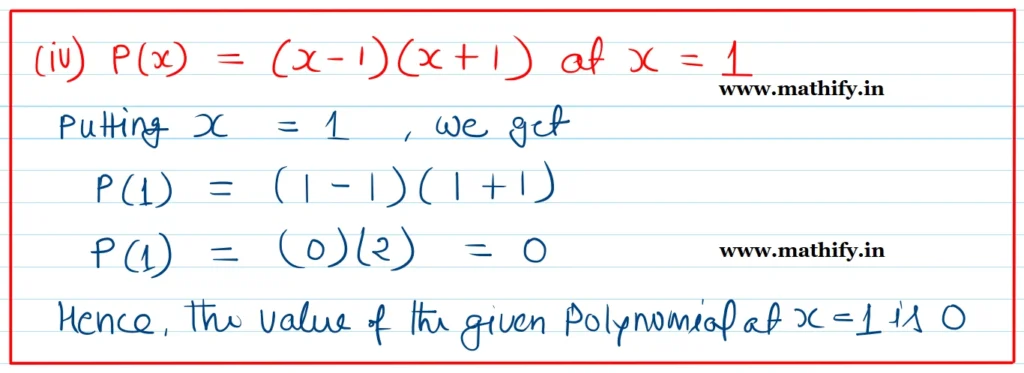 (iv) P(x) = (x-1)(x+1) at x = 1
www.mathify.in
Putting x = 1 , we get
P(1) = (1-1)(1+1)
P(1) = (0)(2) = 0
www.mathify.in
Hence, the value of the given Polynomial at x=1 is 0